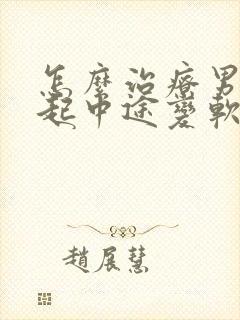 怎麼治療男
起中途變軟
趙展慧